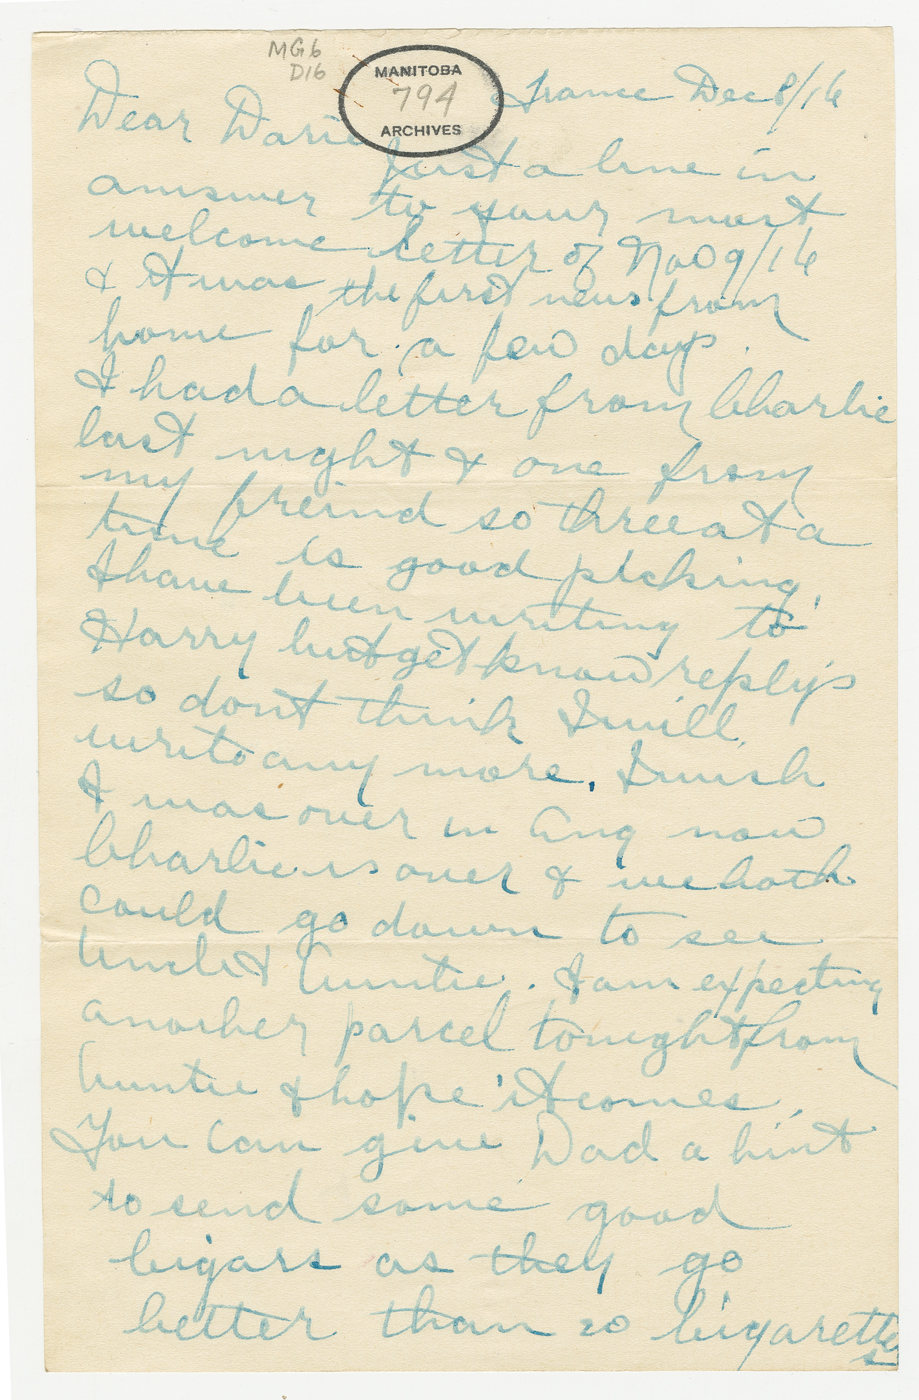 MG6
D16
MANITOBA
794
ARCHIVES
France Dec 8/16
Dear
Just a line in
answer to your most
welcome letter of Nov 9/16
& It was the first news from
home for a few days.
I had a letter from Charlie
last night & one from
my freind so three at a
time is good picking,
I have been writing to
Harry but get know replys
so dont think I will
write any more. I wish
I was over in Eng now
Charlie is over & we both
could go down to see
Uncle & Auntie. I am expecting
another parcel tonight from
Auntie & hope it comes.
You can give Dad a hint
to send some good
Cigars as they go
better than so Cigarettes